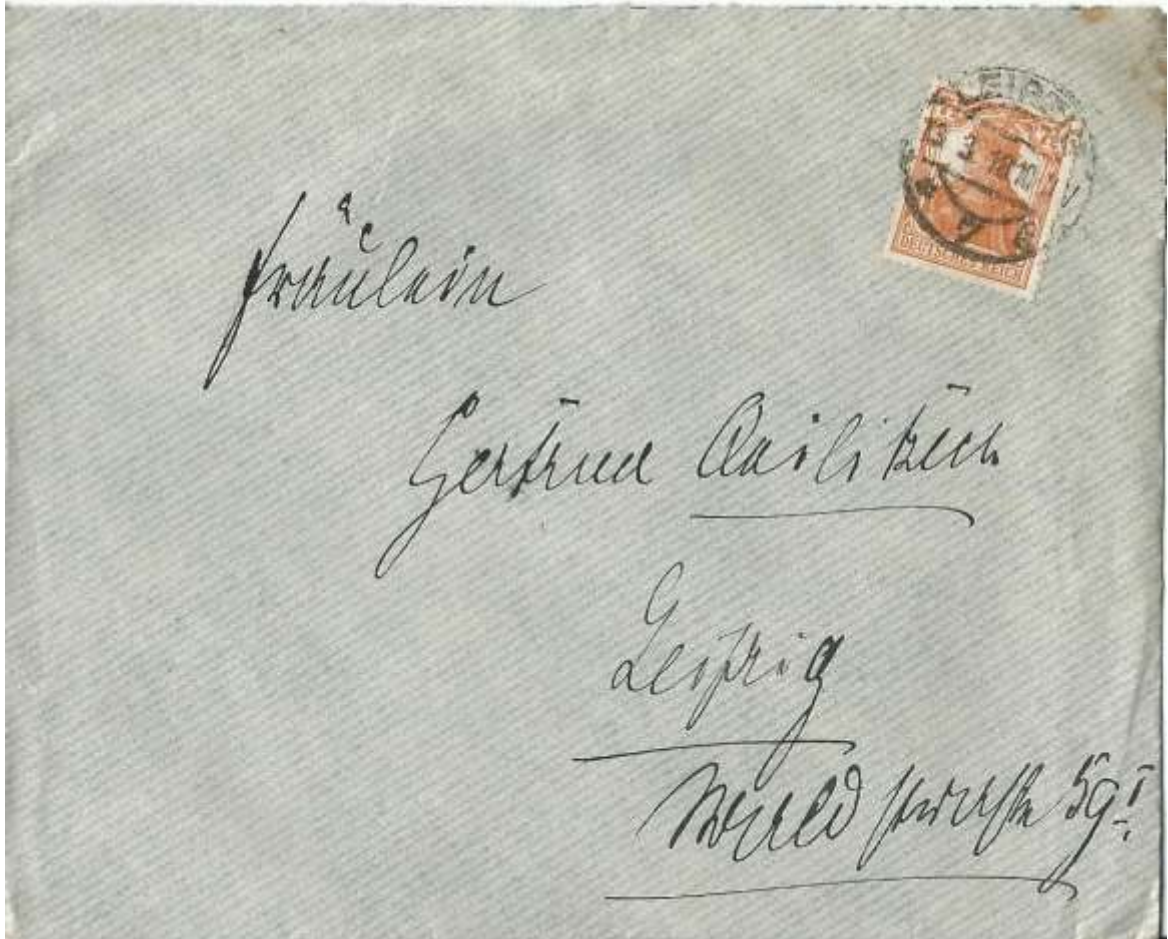 DEUTSCHES REICH
Fräulein
Gertrud
Leipzig
Waldstraße 59 I